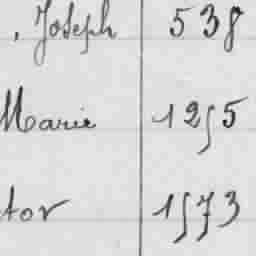 , Joseph 538
Marie 1255
tor 1573